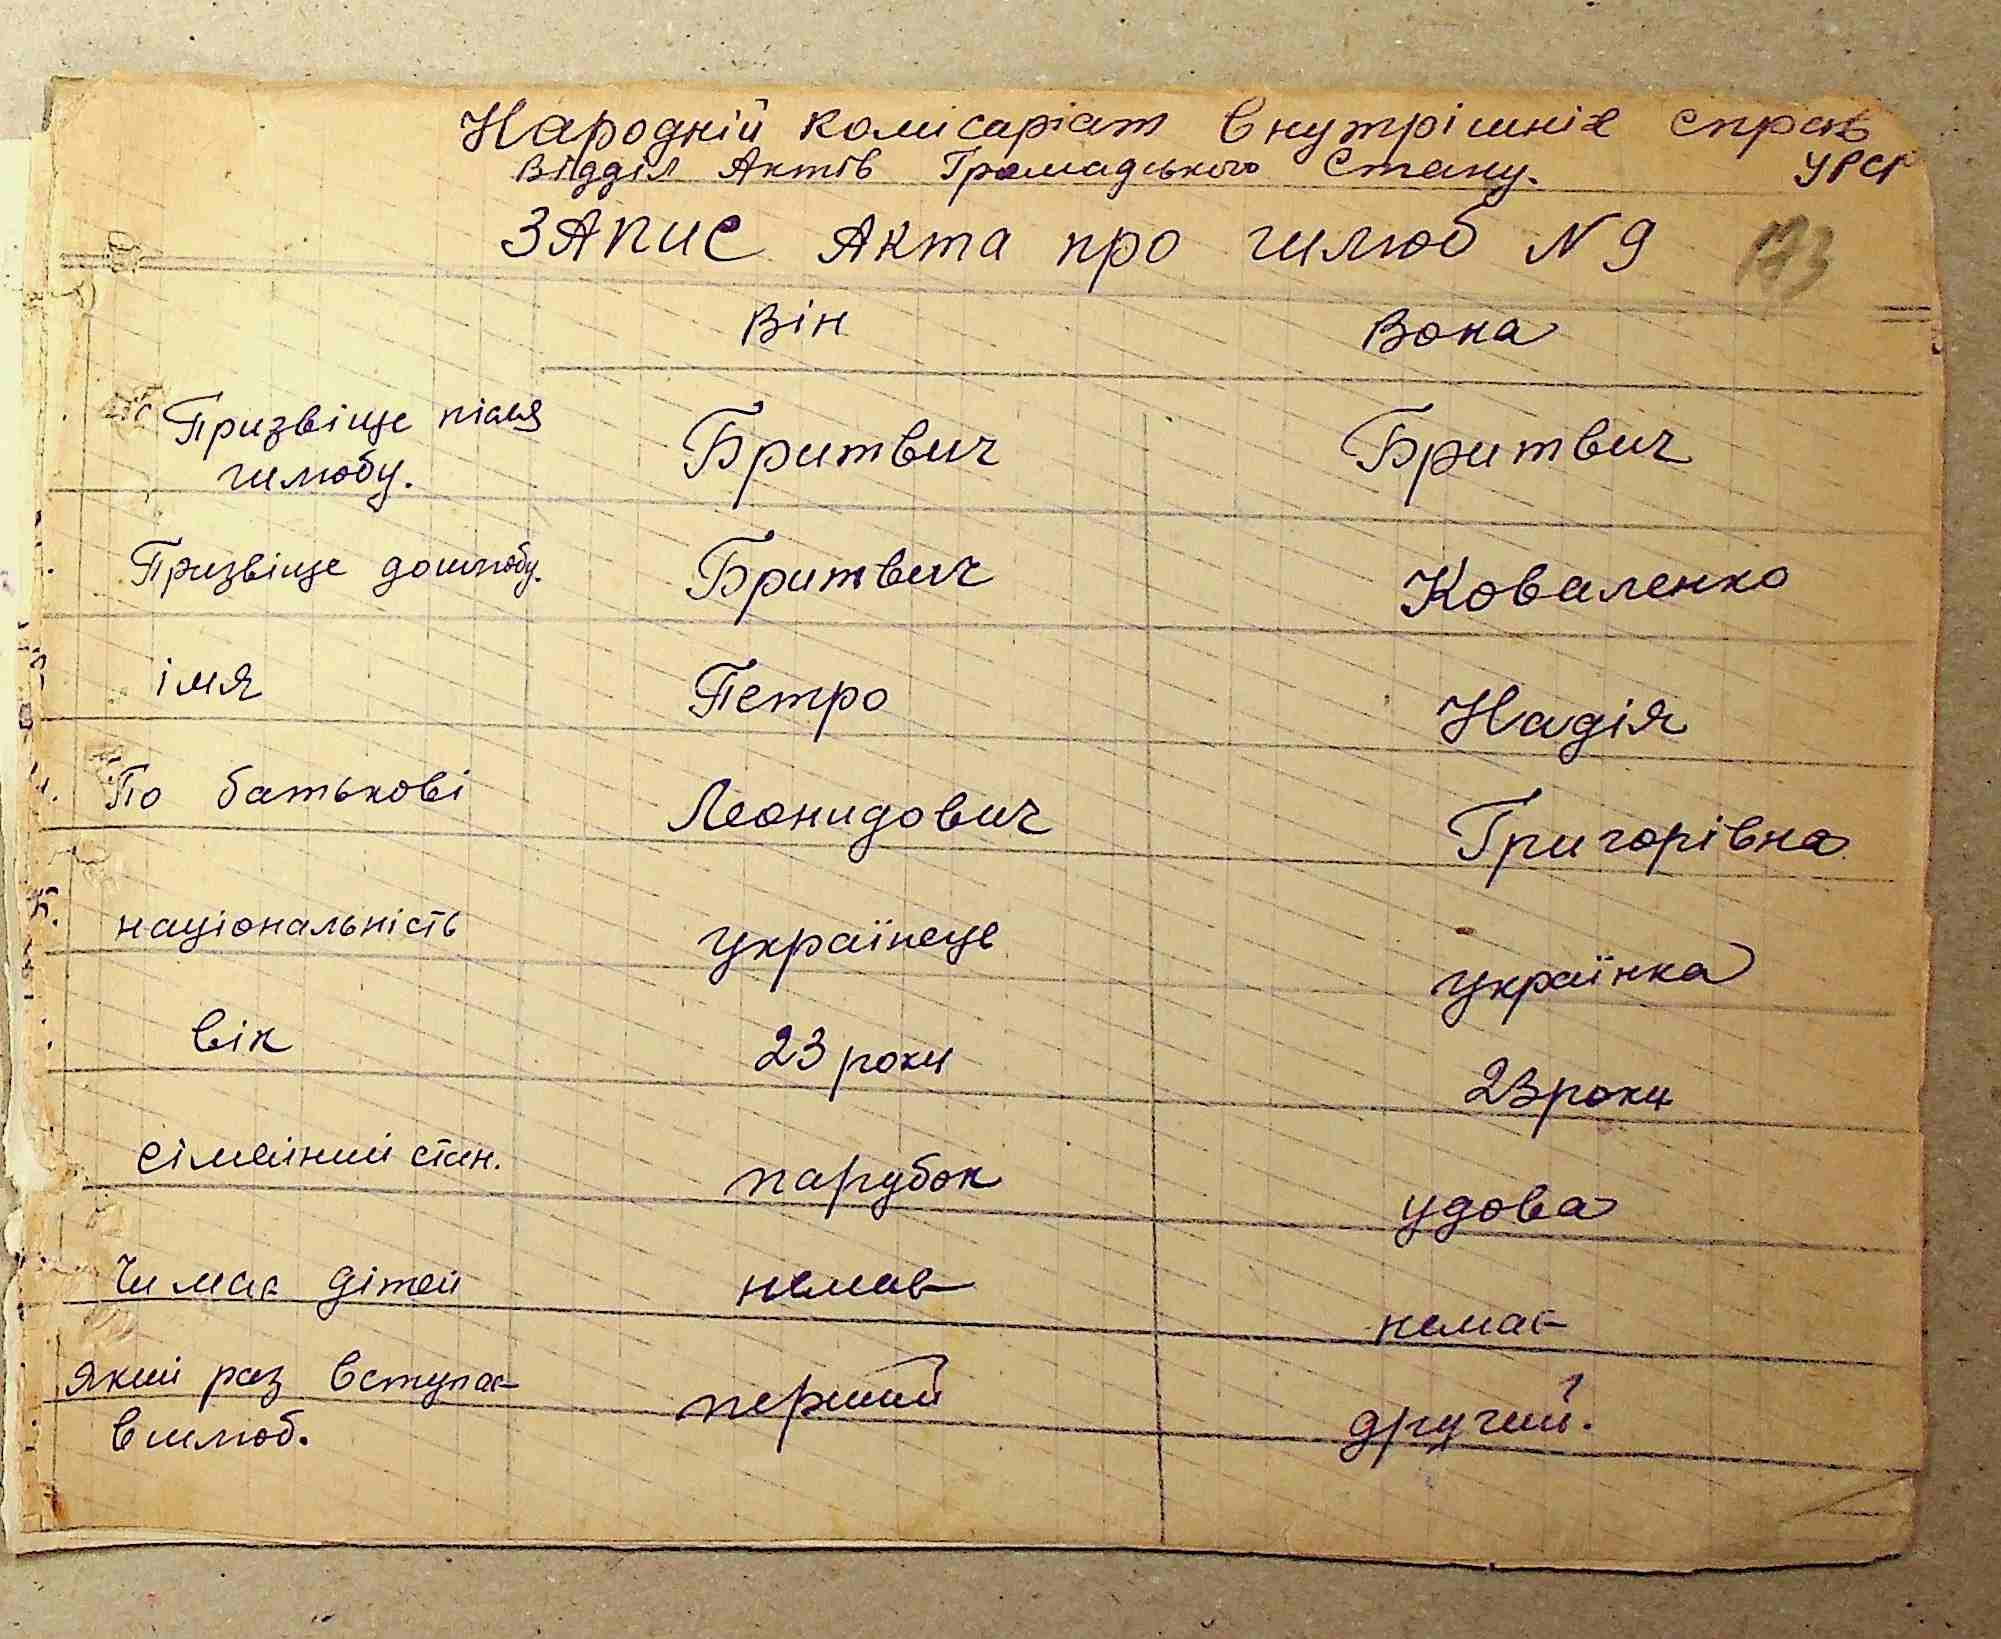 Народній комісаріат внутрішніх справ
УРСР
Відділ Актів Громадського Стану.
ЗАПИС Акта про шлюб N 9
173
Він Вона
Призвіще після Бритвич Бритвич
шлюбу.
Призвіще дошлюбу. Бритвич Коваленко
імя Петро Надія
По батькові Леонидович Григорівна
національність українець українка
вік 23 роки 23 роки
сімейний стан. парубок удова
Чи має дітей немає немає
який раз вступає перший другий.
в шлюб.